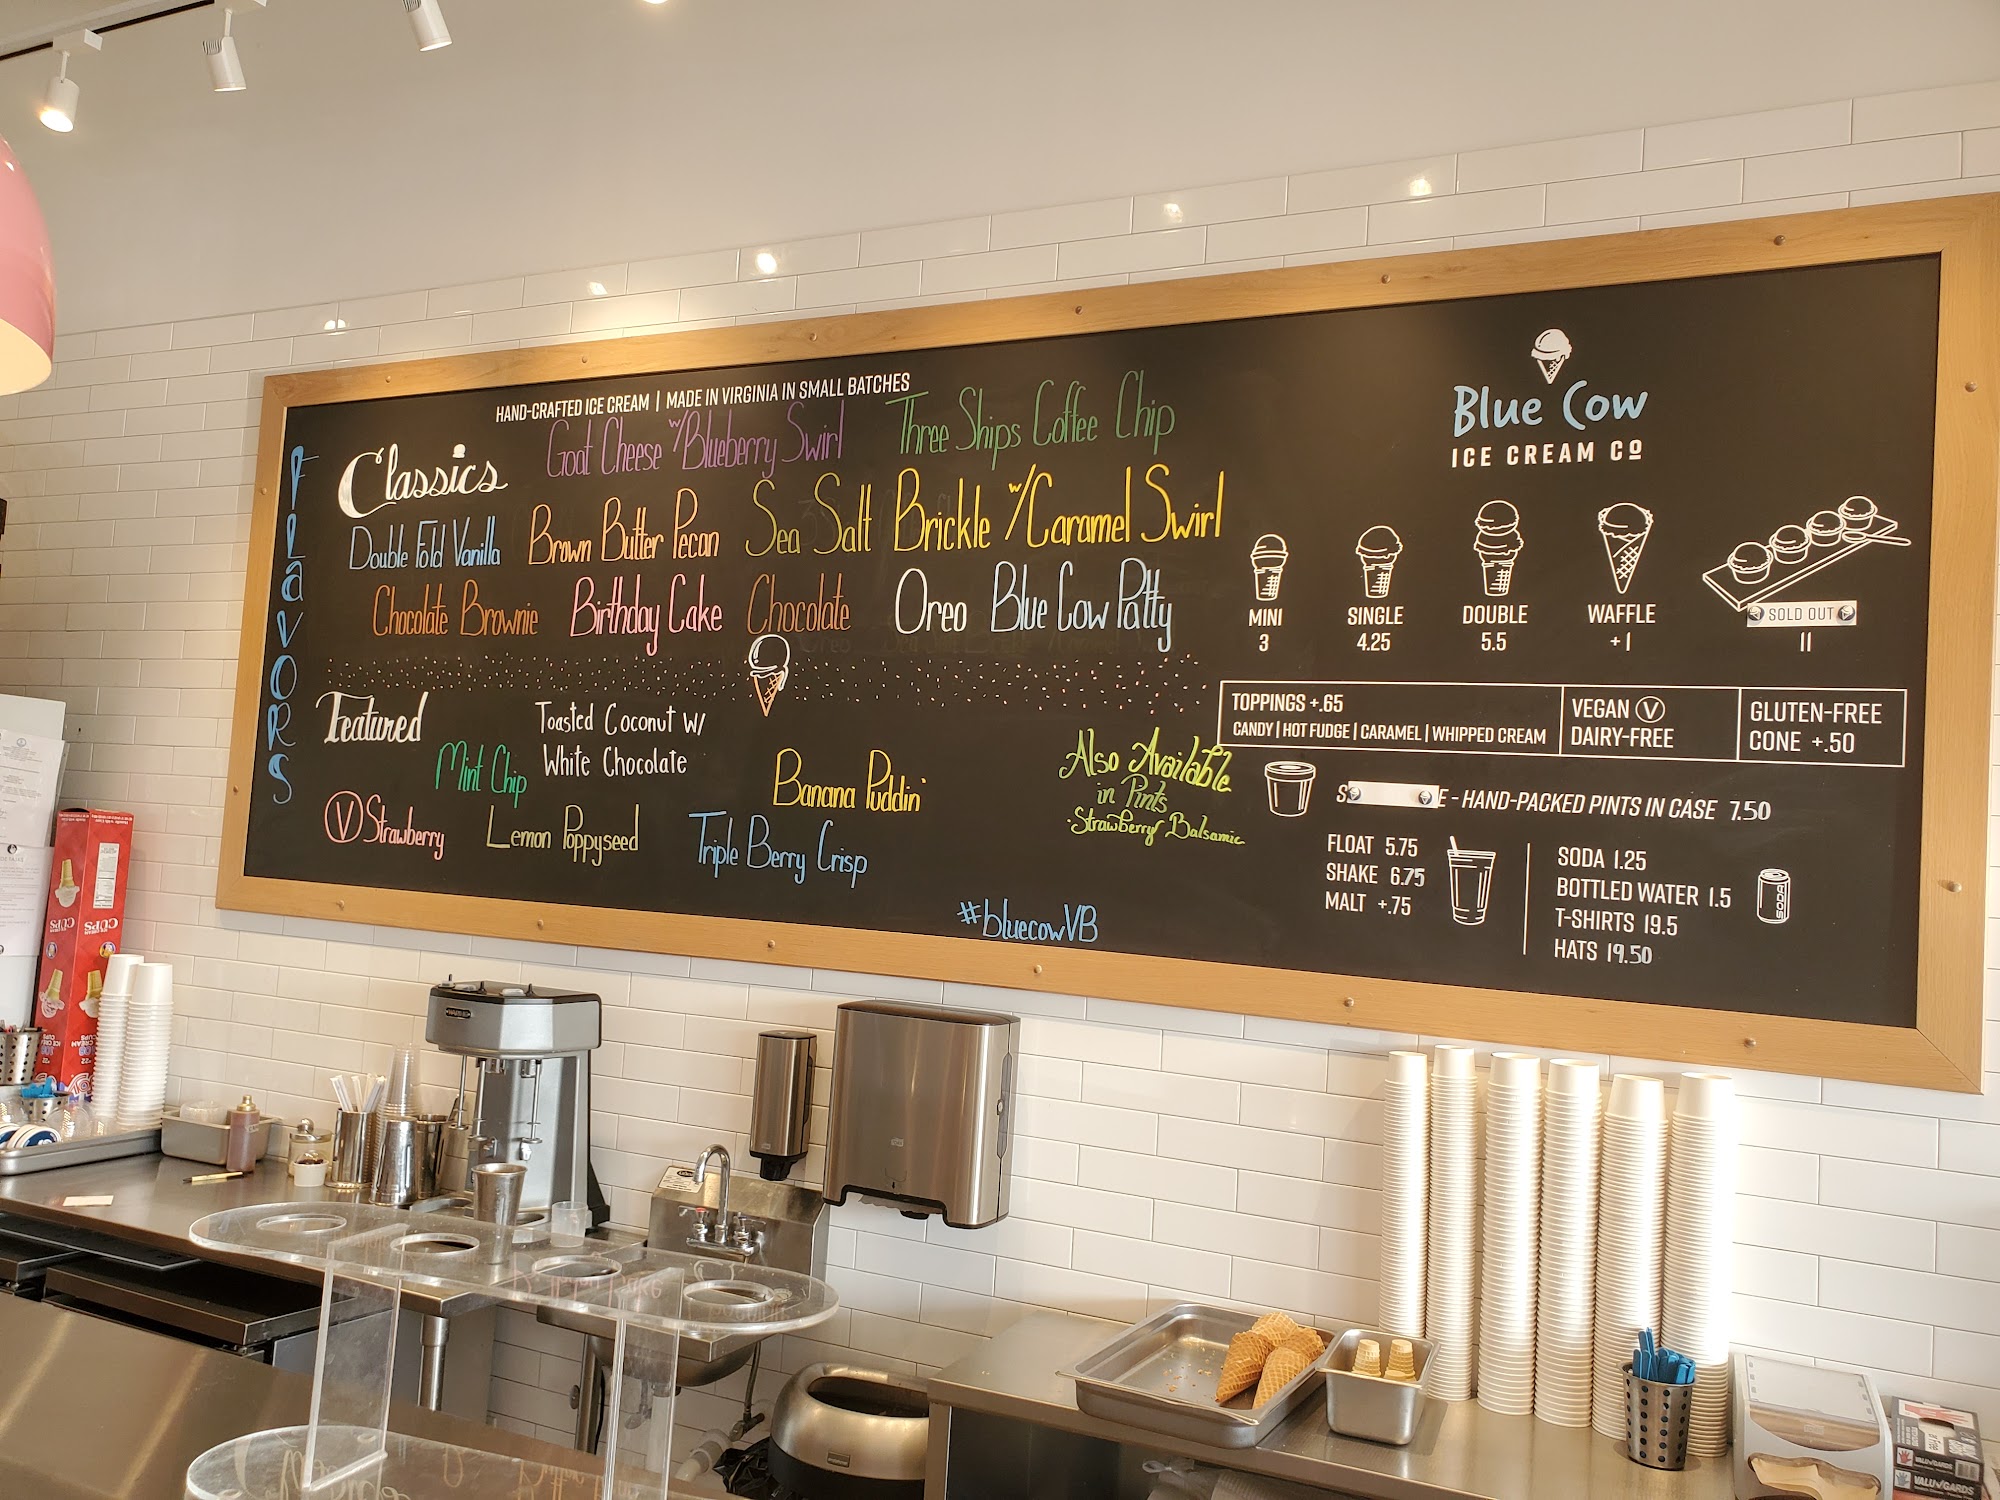 HAND-CRAFTED ICE CREAM | MADE IN VIRGINIA IN SMALL BATCHES
FLaVORS
Classics
Goat Cheese w/Blueberry Swirl
Three Ships Coffee Chip
Double Fold Vanilla
Brown Butter Pecan
Sea Salt Brickle w/Caramel Swirl
Chocolate Brownie
Birthday Cake
Chocolate
Oreo
Blue Cow Patty
Featured
Toasted Coconut W/
White Chocolate
Mint Chip
Banana Puddin'
V Strawberry
Lemon Poppyseed
Triple Berry Crisp
Also Available
in Pints
·Strawberry Balsamic
#bluecowVB
Blue Cow
ICE CREAM CO
MINI
3
SINGLE
4.25
DOUBLE
5.5
WAFFLE
+1
SOLD OUT
11
TOPPINGS +.65
CANDY | HOT FUDGE | CARAMEL | WHIPPED CREAM
VEGAN V
DAIRY-FREE
GLUTEN-FREE
CONE +.50
E - HAND-PACKED PINTS IN CASE 7.50
FLOAT 5.75
SHAKE 6.75
MALT +.75
SODA 1.25
BOTTLED WATER 1.5
T-SHIRTS 19.5
HATS 19.50
SODA
CUPS
CUPS
VALUGARDS
VALUGARDS